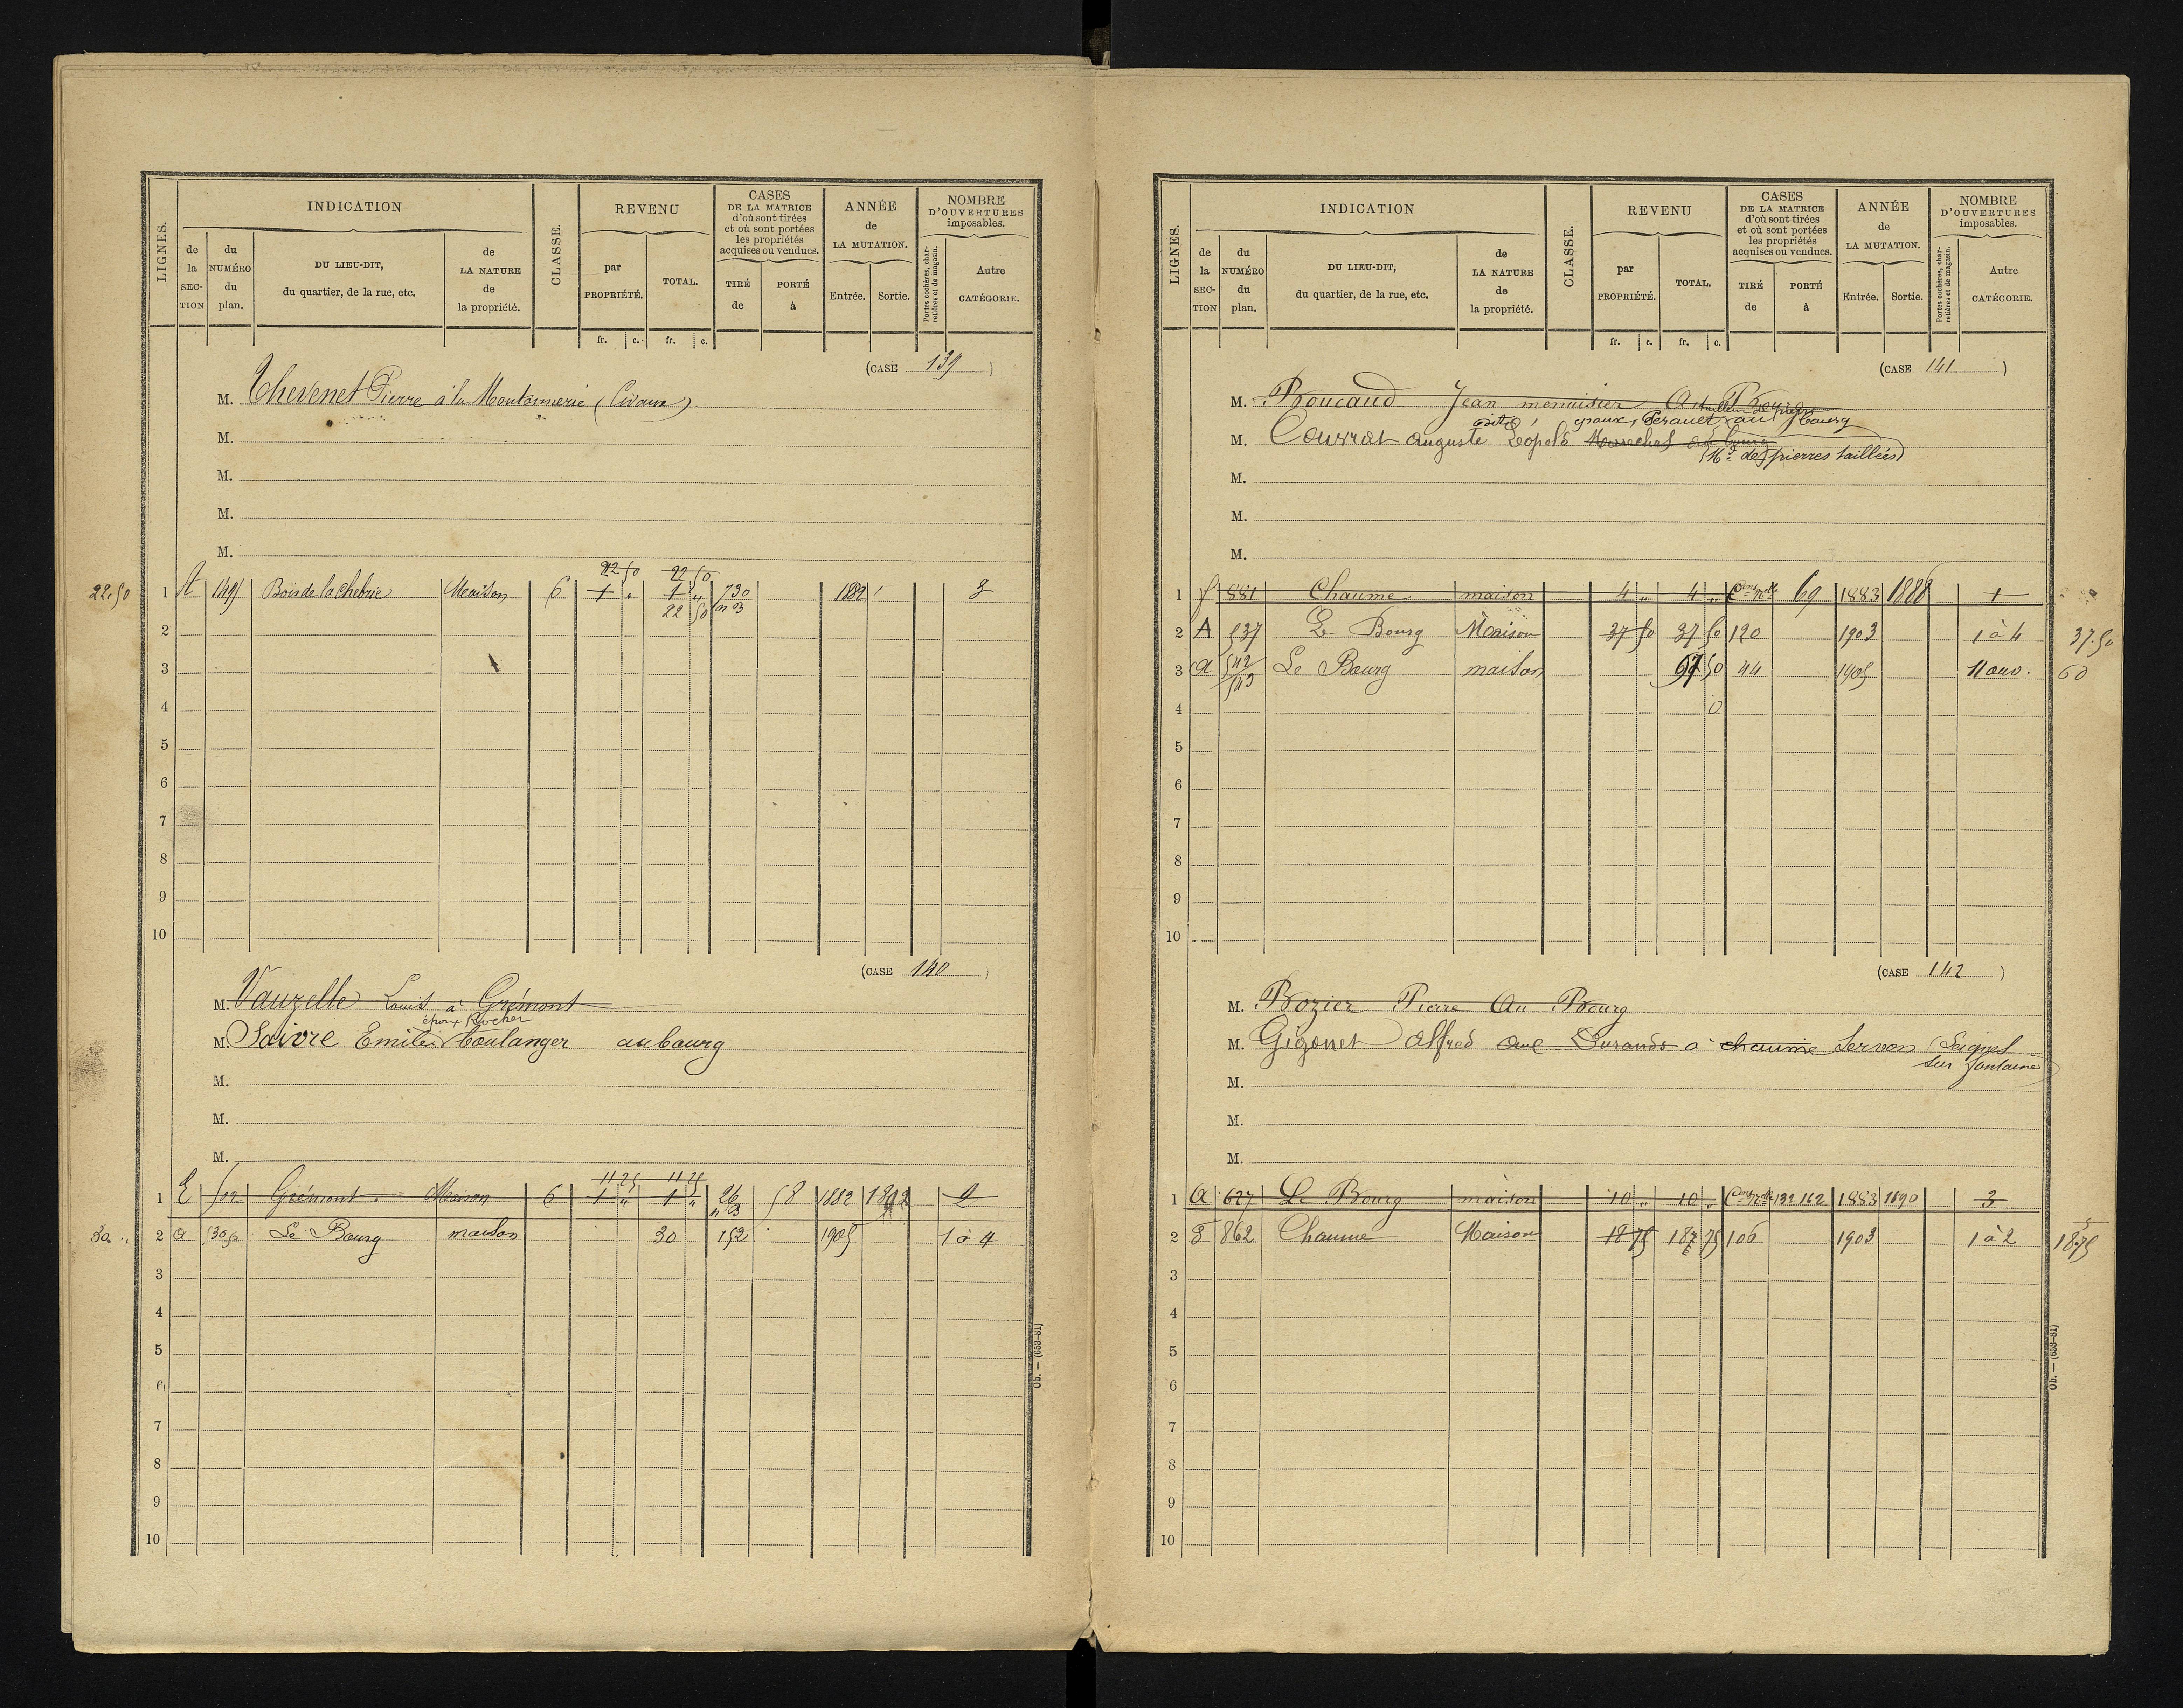 LIGNES.
INDICATION
de la SECTION
du NUMÉRO du plan.
DU LIEU-DIT, du quartier, de la rue, etc.
de LA NATURE de la propriété.
CLASSE.
REVENU
par PROPRIÉTÉ.
TOTAL.
CASES DE LA MATRICE d'où sont tirées et où sont portées les propriétés acquises ou vendues.
TIRÉ de
PORTÉ à
ANNÉE de LA MUTATION.
Entrée.
Sortie.
NOMBRE D'OUVERTURES imposables.
Portes cochères, charretières et de magasin.
Autre CATÉGORIE.
fr. c. fr. c.
(CASE 139)
M. Thevenet Pierre à la Moutonnerie (Civaux)
M.
M.
M.
M.
22 50 22 50
22.50 1 A 149 Bois de la chebrie Maison 6 1 " 1 " 730 1882 3
22 50
2
3
4
5
6
7
8
9
10
(CASE 140)
M. Vauzelle Louis à Grémont
époux Rocher
M. Saivre Emile boulanger au bourg
M.
M.
M.
11 25 11 25
1 E 502 Grémont Maison 6 1 " 1 " 26 58 1882 1892 2
30 " 2 a Le Bourg maison 30 152 1905 1 à 4
3
4
5
6
7
8
9
10
Ob. — (669-81)
LIGNES.
INDICATION
de la SECTION
du NUMÉRO du plan.
DU LIEU-DIT, du quartier, de la rue, etc.
de LA NATURE de la propriété.
CLASSE.
REVENU
par PROPRIÉTÉ.
TOTAL.
CASES DE LA MATRICE d'où sont tirées et où sont portées les propriétés acquises ou vendues.
TIRÉ de
PORTÉ à
ANNÉE de LA MUTATION.
Entrée.
Sortie.
NOMBRE D'OUVERTURES imposables.
Portes cochères, charretières et de magasin.
Autre CATÉGORIE.
fr. c. fr. c.
(CASE 141)
M. Boucaud Jean menuisier Au Bourg
au bourg
M. Courrat Auguste Léopold Marechal au bourg
(Md de pierres taillées)
M.
M.
M.
1 f 881 Chaume maison 4 " 4 " Cons nelle 69 1883 1888 1
2 A 537 Le Bourg Maison 37 50 37 50 120 1903 1 à 4 37.50
3 a 542 Le Bourg maison 97 50 44 1905 11 ouv. 60
543
4
5
6
7
8
9
10
(CASE 142)
M. Bozier Pierre Au Bourg
M. Gigonet Alfred aux Durands à chaume Servon (Leignes
sur fontaine)
M.
M.
M.
1 a 627 Le Bourg maison 10 " 10 " Cons nelle 132 162 1883 1890 3
2 862 Chaume Maison 18 75 18 75 106 1903 1 à 2 18.75
3
4
5
6
7
8
9
10
Ob. — (669-81)